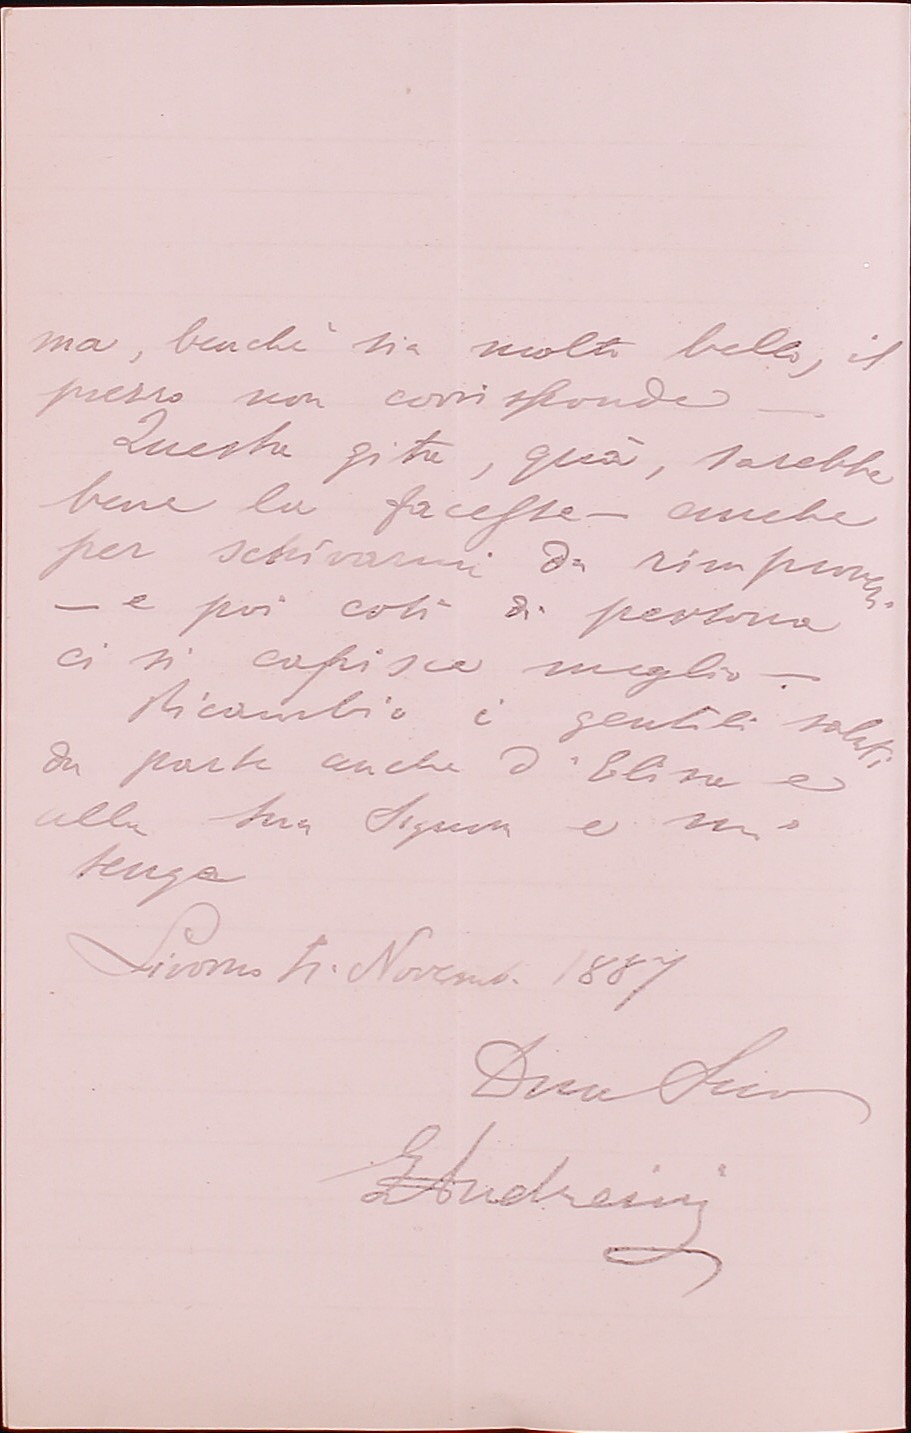 ma, benchè sia molto bello, il
prezzo non corrisponde —.
Questa gita, quà, sarebbe
bene la facesse — anche
per schivarmi da rimproveri
— e poi così di persona
ci si capisce meglio —.
Ricambio i gentili saluti
da parte anche d'Elisa e
alla Sua Signora e mi
tenga
Livorno Novemb. 1887
Suo
Andreini